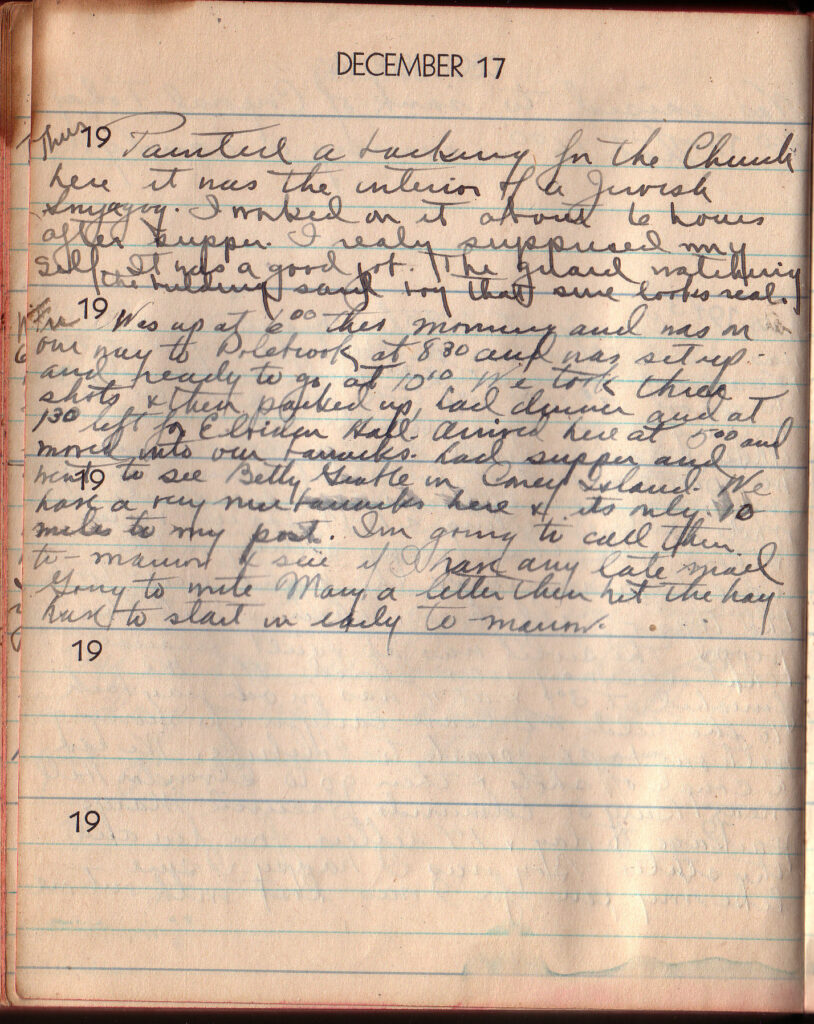 DECEMBER 17
Thus 19 Painted a backing for the Church
here it was the interior of a Jewish
Snyagog. I worked on it about 6 hours
after supper. I realy supprised my
self. It was a good job. The guard watching
the building said boy that sure looks real.
Fri 19 Was up at 6 00 this morning and was on
our way to Polebrook at 8 30 and was set up
and ready to go at 10 10 We took three
shots & then packed up, had dinner and at
1 30 left for Elveden Hall. Arrived here at 5 00 and
moved into our barracks. had supper and
went 19 to see Betty Grable in Coney Island. We
have a very nice barracks here & its only 10
miles to my post. I'm going to call them
to-morrow & see if I have any late mail
Going to write Mary a letter then hit the hay
have to start in early to-morrow.
19
19